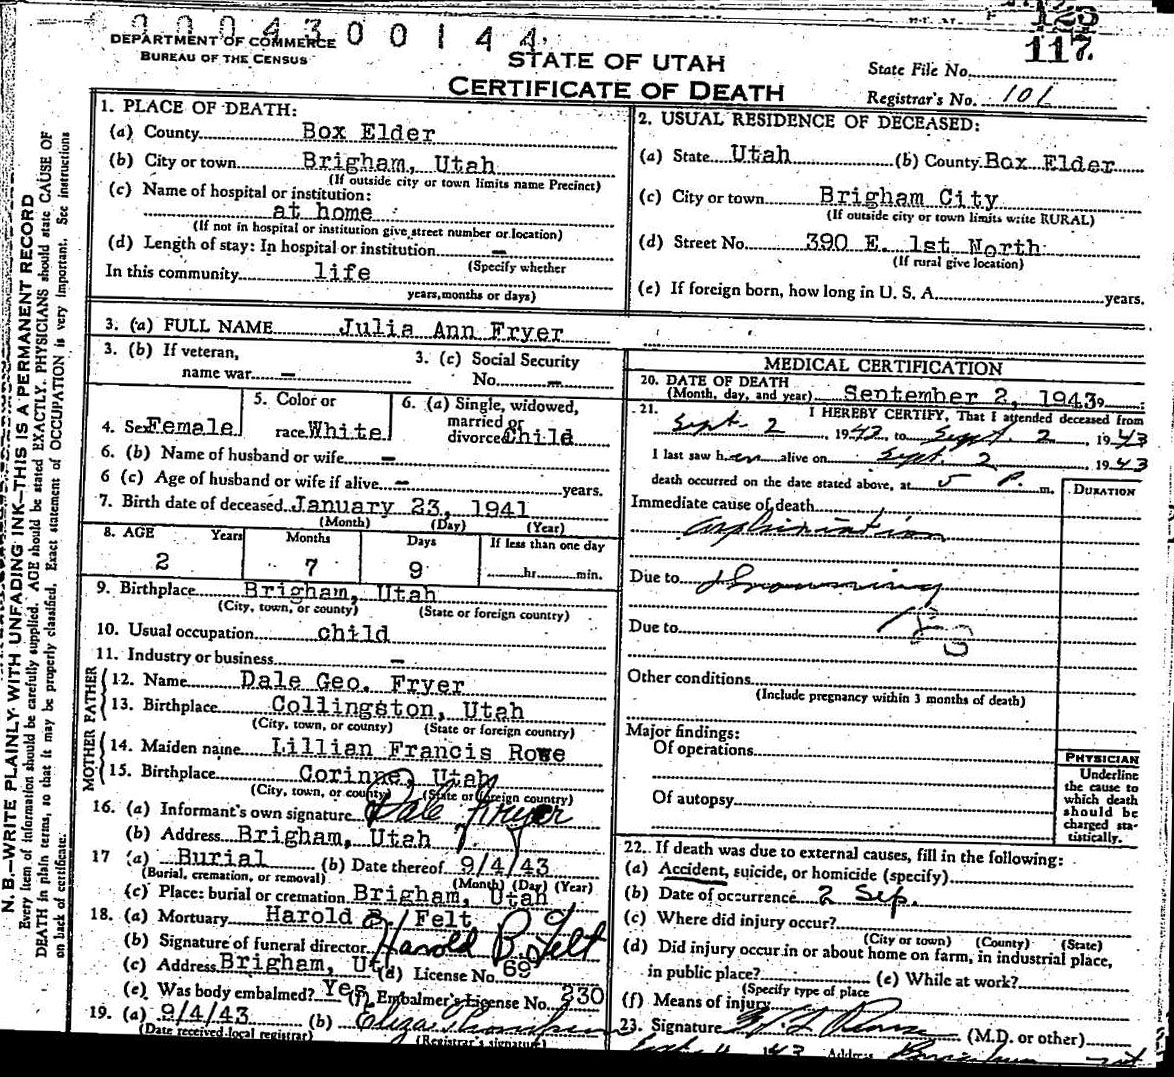 123
0004300144
117
DEPARTMENT OF COMMERCE
BUREAU OF THE CENSUS
STATE OF UTAH
CERTIFICATE OF DEATH
State File No.
Registrar's No. 101
N. B.—WRITE PLAINLY WITH UNFADING INK—THIS IS A PERMANENT RECORD
Every item of information should be carefully supplied. AGE should be stated EXACTLY. PHYSICIANS should state CAUSE OF
DEATH in plain terms, so that it may be properly classified. Exact statement of OCCUPATION is very important. See instructions
on back of certificate.
1. PLACE OF DEATH:
(a) County Box Elder
(b) City or town Brigham, Utah
(If outside city or town limits name Precinct)
(c) Name of hospital or institution:
at home
(If not in hospital or institution give street number or location)
(d) Length of stay: In hospital or institution —
(Specify whether
In this community life
years, months or days)
2. USUAL RESIDENCE OF DECEASED:
(a) State Utah (b) County Box Elder
(c) City or town Brigham City
(If outside city or town limits write RURAL)
(d) Street No. 390 E. 1st North
(If rural give location)
(e) If foreign born, how long in U. S. A. years.
3. (a) FULL NAME Julia Ann Fryer
3. (b) If veteran,
name war —
3. (c) Social Security
No. —
4. Sex Female
5. Color or
race White
6. (a) Single, widowed,
married or
divorced Child
6. (b) Name of husband or wife —
6 (c) Age of husband or wife if alive — years.
7. Birth date of deceased January 23, 1941
(Month) (Day) (Year)
8. AGE Years Months Days If less than one day
2 7 9 hr. min.
9. Birthplace Brigham, Utah
(City, town, or county) (State or foreign country)
10. Usual occupation child
11. Industry or business —
FATHER
12. Name Dale Geo. Fryer
13. Birthplace Collingston, Utah
(City, town, or county) (State or foreign country)
MOTHER
14. Maiden name Lillian Francis Rowe
15. Birthplace Corinne, Utah
(City, town, or county) (State or foreign country)
16. (a) Informant's own signature Dale Fryer
(b) Address Brigham, Utah
17 (a) Burial (b) Date thereof 9/4/43
(Burial, cremation, or removal) (Month) (Day) (Year)
(c) Place: burial or cremation Brigham, Utah
18. (a) Mortuary Harold B. Felt
(b) Signature of funeral director Harold B. Felt
(c) Address Brigham, Ut (d) License No. 69
(e) Was body embalmed? Yes (f) Embalmer's License No. 230
19. (a) 9/4/43 (b) Eliza
(Date received local registrar) (Registrar's signature)
MEDICAL CERTIFICATION
20. DATE OF DEATH
(Month, day, and year) September 2, 1943
21. I HEREBY CERTIFY, That I attended deceased from
Sept. 2, 1943 to Sept. 2, 1943
I last saw her alive on Sept. 2, 1943
death occurred on the date stated above, at 5 P. m.
DURATION
Immediate cause of death
Asphixiation
Due to drowning
Due to
Other conditions
(Include pregnancy within 3 months of death)
Major findings:
Of operations
Of autopsy
PHYSICIAN
Underline
the cause to
which death
should be
charged sta-
tistically.
22. If death was due to external causes, fill in the following:
(a) Accident, suicide, or homicide (specify)
(b) Date of occurrence 2 Sep.
(c) Where did injury occur?
(City or town) (County) (State)
(d) Did injury occur in or about home on farm, in industrial place,
in public place? (e) While at work?
(Specify type of place
(f) Means of injury
23. Signature (M.D. or other)
43 Address Brigham